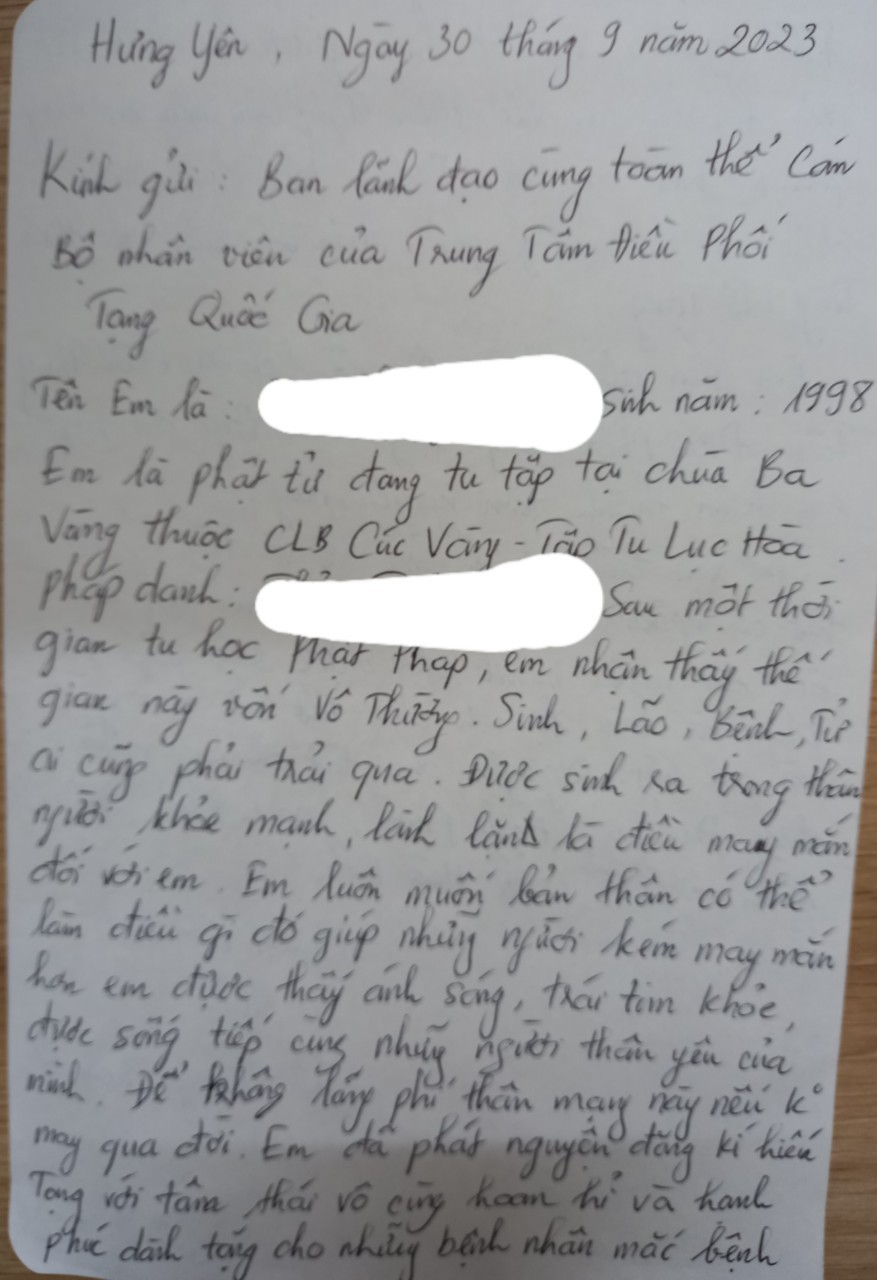 Hưng Yên, Ngày 30 tháng 9 năm 2023
Kính gửi: Ban lãnh đạo cùng toàn thể Cán
Bộ nhân viên của Trung Tâm Điều Phối
Tạng Quốc Gia
Tên Em là: sinh năm: 1998
Em là phật tử đang tu tập tại chùa Ba
Vàng thuộc CLB Cúc Vàng - Tập Tu Lục Hoà.
Pháp danh: Sau một thời
gian tu học Phật Pháp, em nhận thấy thế
gian này vốn Vô Thường. Sinh, Lão, Bệnh, Tử
ai cũng phải trải qua. Được sinh ra trong thân
người khỏe mạnh, lành lặn là điều may mắn
đối với em. Em luôn muốn bản thân có thể
làm điều gì đó giúp những người kém may mắn
hơn em được thấy ánh sáng, trái tim khỏe,
được sống tiếp cùng những người thân yêu của
mình. Để không lãng phí thân mạng này nếu k°
may qua đời. Em đã phát nguyện đăng kí hiến
Tạng với tâm thái vô cùng hoan hỉ và hạnh
phúc dành tặng cho những bệnh nhân mắc bệnh